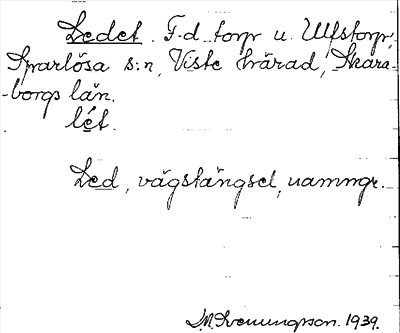 Ledet. F.d. torp u. Ulfstorp,
Sparlösa s:n, Viste härad, Skara-
-borgs län.
lét.
Led, vägstängsel, namngr.
1939.